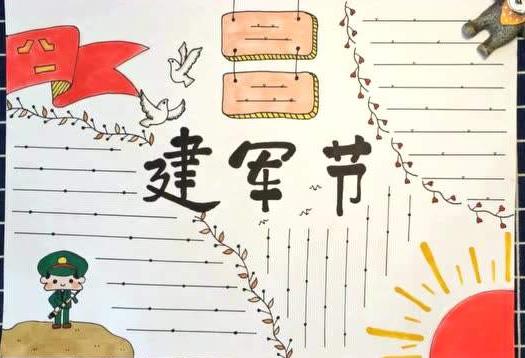 八一
建军节